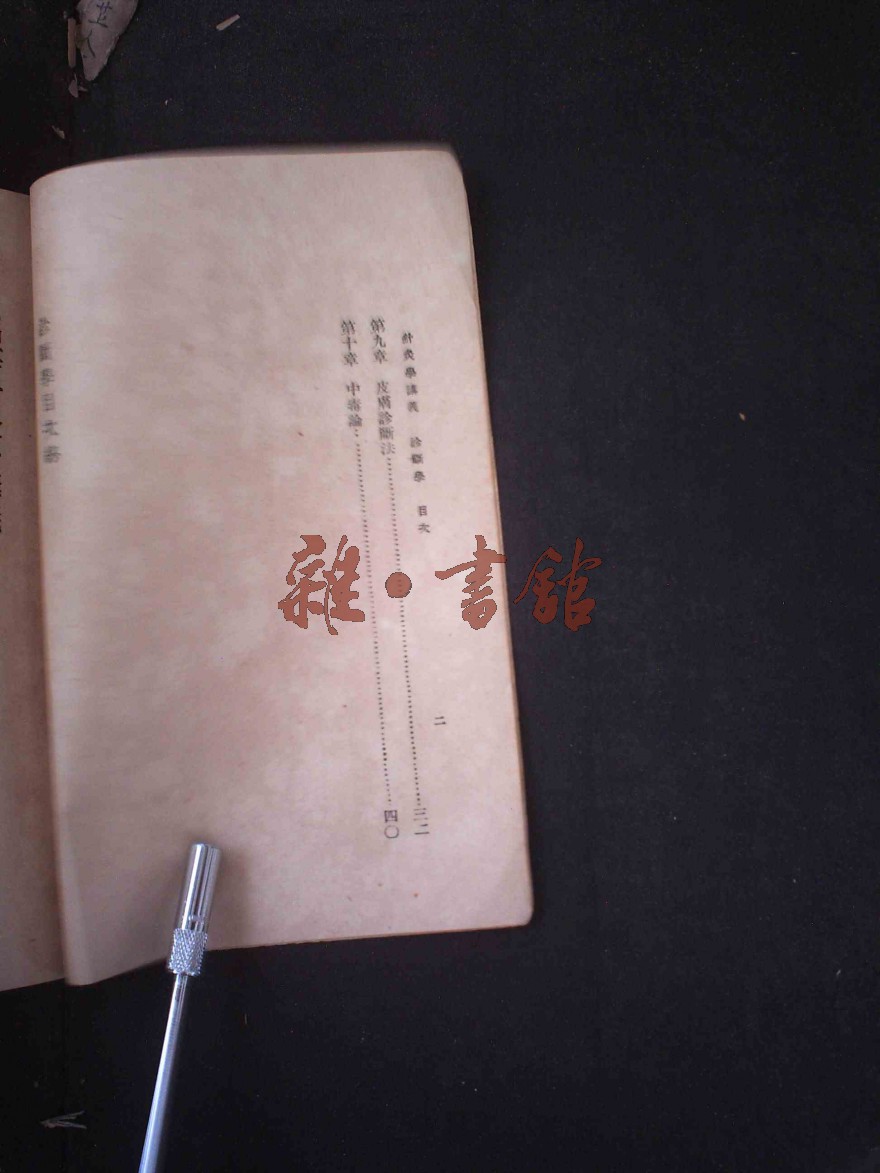 針灸學講義　診斷學　目次
二
第九章　皮膚診斷法……三二
第十章　中毒論……四〇
診斷學目次終
雜•書館